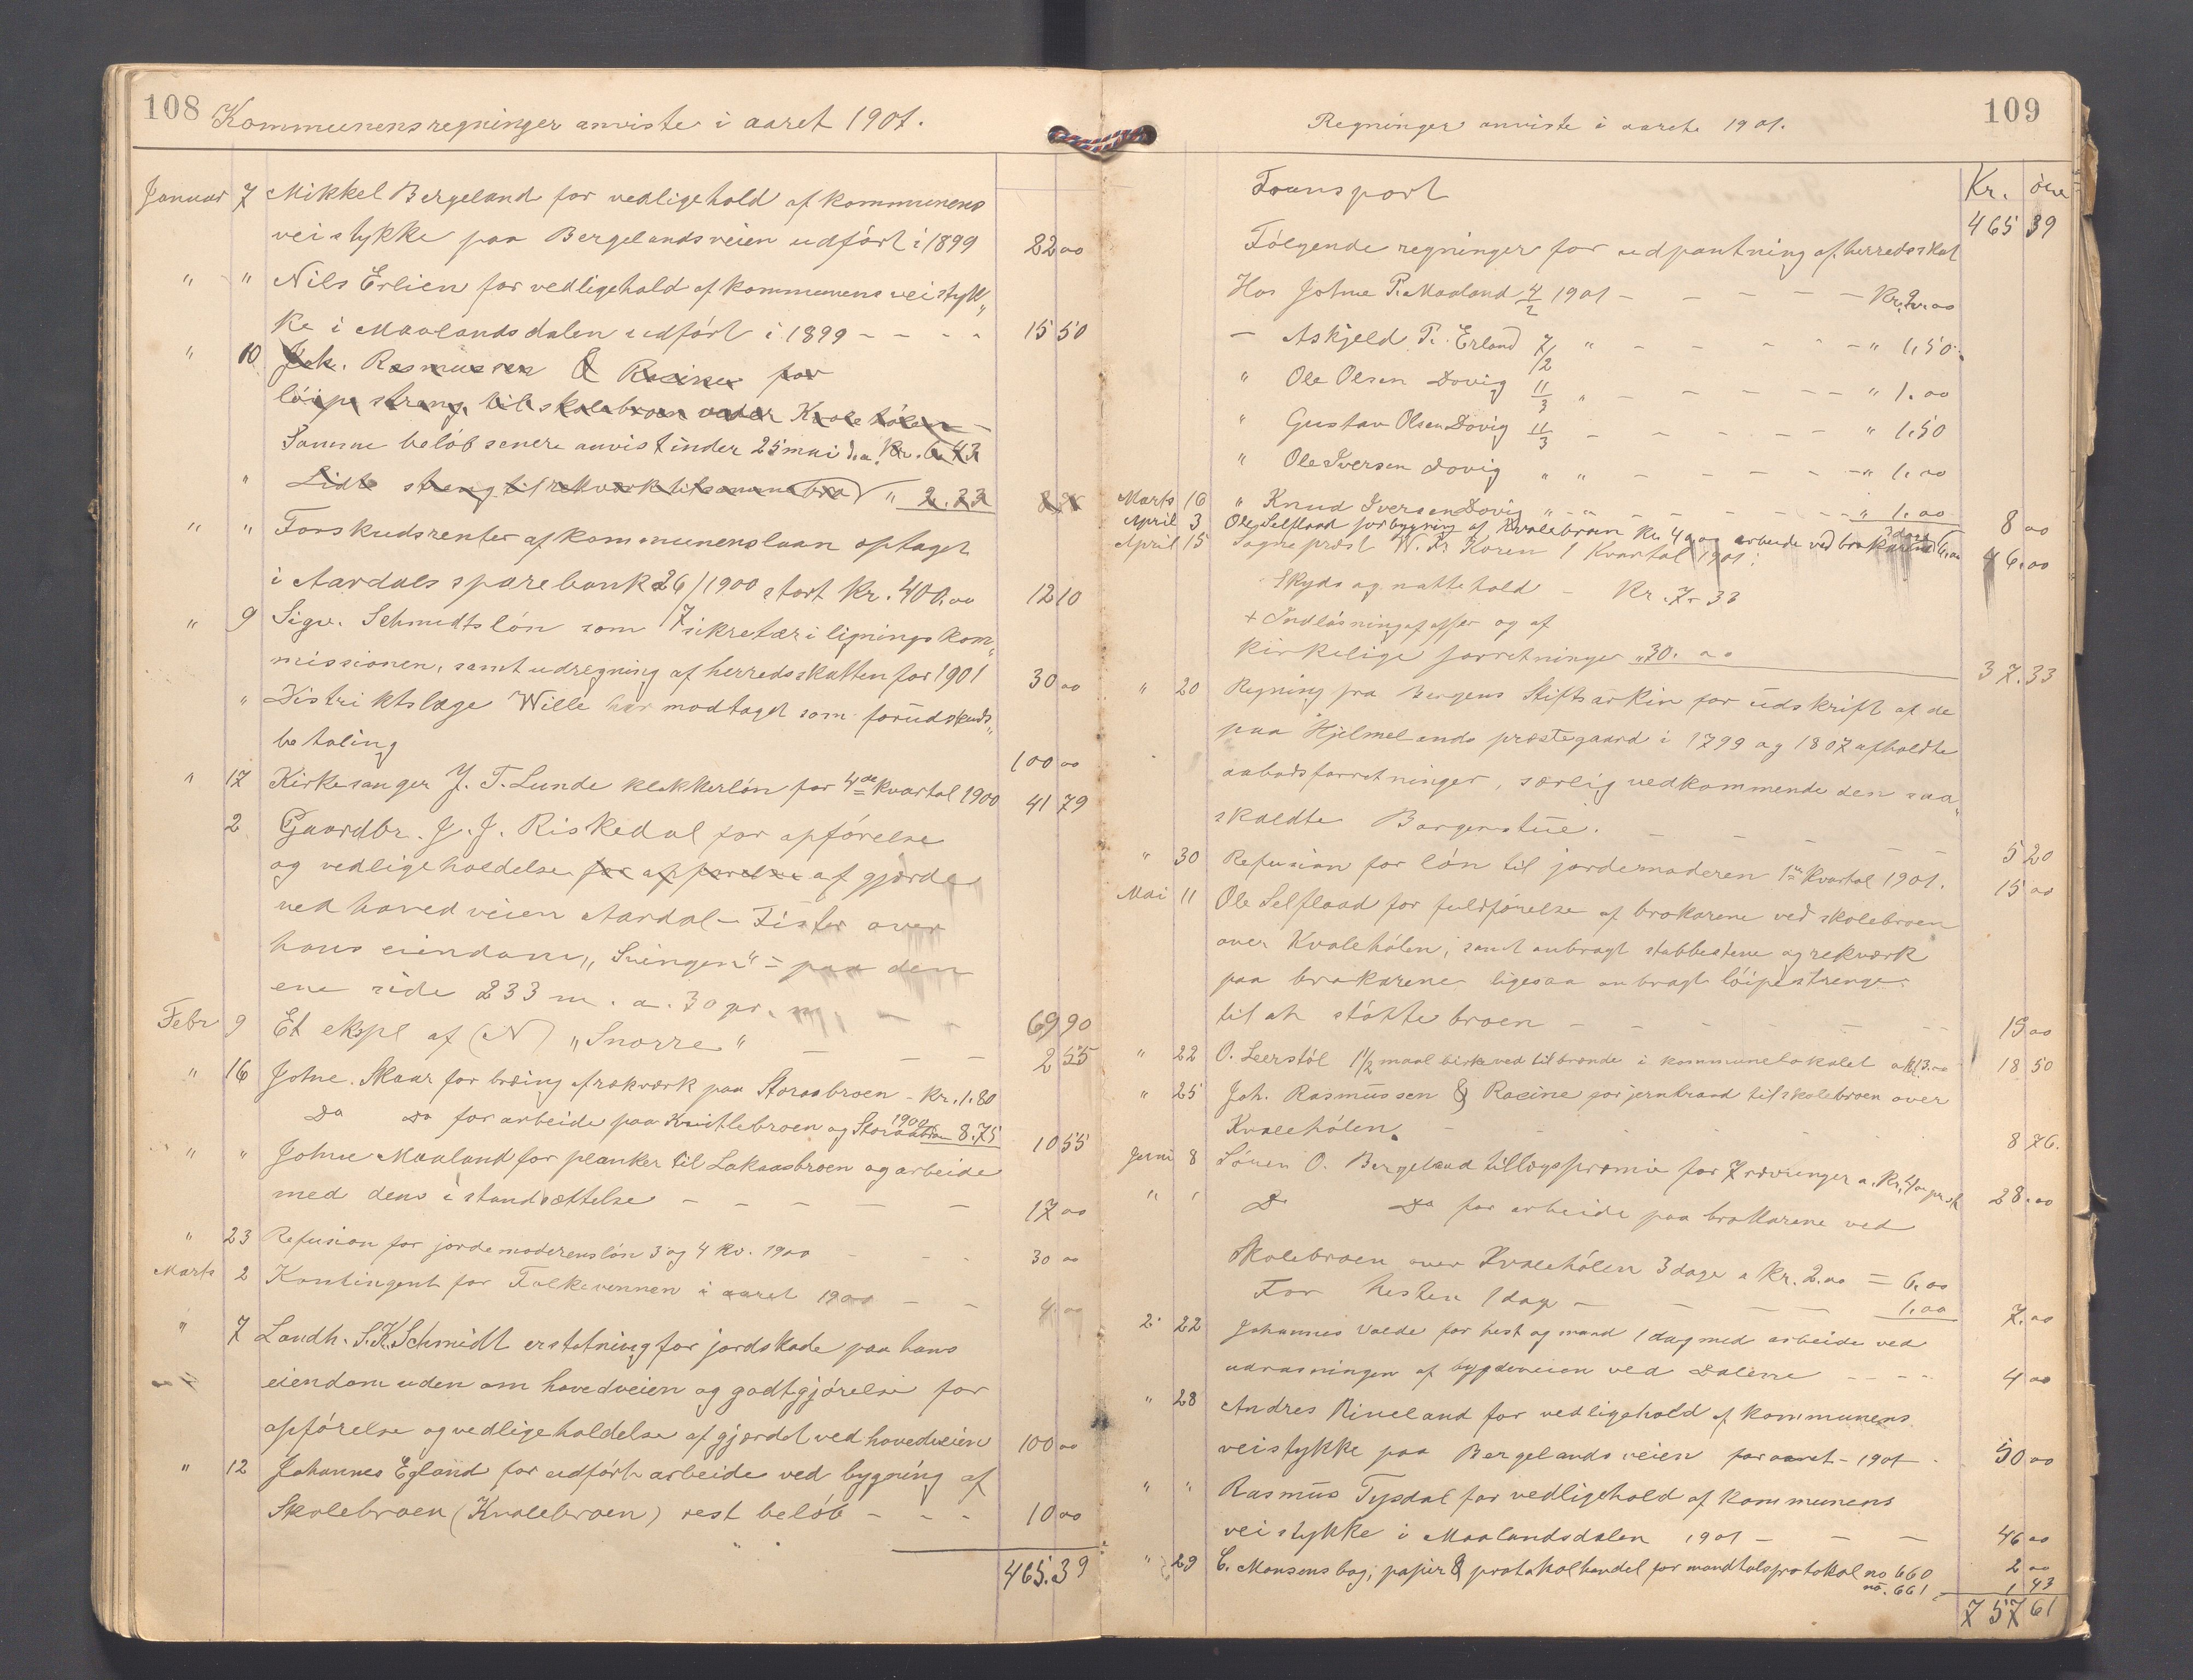 108
Kommunens regninger anviste i aaret 1901.
Januar 7 Mikkel Bergeland for vedligehold af kommunens
veistykke paa Bergelandsveien udført i 1899 22 00
" " Nils Erlien for vedligehold af kommunens veistyk„
ke i Maalandsdalen udført i 1899 - - - - 15 50
" 10 Joh. Rasmussen & Racine for
løipestreng til skolebroen over Kvalehølen -
Samme beløb senere anvist under 25 mai d.a. Kr. 6.43
" Lidt streng til rekværk til samme bro " 2.33
" " Forskudsrenter af kommunens laan optaget
i Aardals sparebank 26/7 1900 stort Kr. 400.00 12 10
" 9 Sigv. Schmidts løn som sikretær i lignings kom„
missionen, samt udregning af herredsskatten for 1901 30 00
" Distriktslæge Wille har modtaget som forudskuds„
betaling 100 00
" 17 Kirkesanger J. T. Lunde klokkerløn for 4de kvartal 1900 41 79
2 Gaardbr. J. J. Riskedal for opførelse
og vedligeholdelse for opførelse af gjærde
ved hovedveien Aardal - Fister over
hans eiendom „Svingen" = paa den
ene side 233 m. a. 30 pr. m. - - 69 90
Febr 9 Et ekspl af (N) „Snorre" - - - 2 55
" 16 Johne Skaar for bræing af rækværk paa Storaabroen - Kr. 1.80
Do Do for arbeide paa Kvitlebroen og Storaabroen 1900 8.75 10 55
" " Johne Maaland for planker til Lakaasbroen og arbeide
med dens istandsættelse - - - - - 17 00
" 23 Refusion for jordemoderens løn 3 og 4 Kv. 1900 - - - 30 00
Marts 2 Kontingent for Folkevennen i aaret 1900 - - 4.00
" 7 Landh. S.K. Schmidt erstatning for jordskade paa hans
eiendom uden om hovedveien og godtgjørelse for
opførelse og vedligeholdelse af gjærdet ved hovedveien 100 00
" 12 Johannes Egland for udført arbeide ved bygning af
Skolebroen (Kvalebroen) rest beløb - - - 10 00
465.39
109
Regninger anviste i aarete 1901.
Transport Kr. øre
465 39
Følgende regninger for udpantning af herredsskat
Hos Johne P. Maaland 4/2 1901 - - - - - Kr. 2.00
- Askjeld P. Erland 7/2 " - - - - - " 1.50.
" Ole Olsen Døvig 11/3 " - - - - - " 1.00
" Gustav Olsen Døvig 11/3 - - - - - " 1.50
" Ole Iversen Døvig " " - - - - - " 1.00
Marts 16 " Knud Iversen Døvig " - - - - - - " 1.00 8 00
April 3 Ole Selfland for bygning af Kvalebroen Kr. 40.00 arbeide ved brokarene 3 dage 6.00 46.00
April 15 Sogneprest W. Fr Koren 1 Kvartal 1901:
Skyds og nattehold - Kr. 7.33
+ Indløsning af offer og af
kirkelige forretninger „30.00 37.33
" 20 Regning fra Bergens Stiftsarkiv for udskrift af de
paa Hjelmelands præstegaard i 1799 og 1807 afholdte
aabodsforretninger, særlig vedkommende den saa„
kaldte Borgerstue. - - - - 5 20
" 30 Refusion for løn til jordemoderen 1ste Kvartal 1901. 15 00
Mai 11 Ole Selfland for fuldførelse af brokarene ved skolebroen
over Kvalehølen, samt anbragt stabbestene og rekværk
paa brokarene ligesaa anbragt løipestrenge
til at støtte broen - - - - - 15 00
" 22 O. Leerstøl 1 1/2 maal birkeved til brænde i kommunelokalet a Kr. 13.00 18 50
" 25 Joh. Rasmussen & Racine for jernbraad til skolebroen over
Kvalehølen. - - - - - 8 76.
Juni 8 Søren O. Bergeland tillægspræmie for 7 rævunger a. Kr. 4.00 pr stk 28.00
" " Do Do for arbeide paa brokarene ved
Skolebroen over Kvalehølen 3 dage a Kr. 2.00 = 6.00
For hesten 1 dag - - - - 1.00 7.00
" 22 Johannes Valde for hest og mand 1 dag med arbeide ved
udrasningen af bygdeveien ved Dalene - - - - 4 00
" 28 Andres Riveland for vedligehold af kommunens
veistykke paa Bergelandsveien for aaret - 1901 - 50 00
" " Rasmus Tysdal for vedligehold af kommunens
veistykke i Maalandsdalen 1901 - - - 46 00
" 29 C. Monsens bog, papir & protokolhandel for mandtalsprotokol no 660 2 00
no. 661 1 43
757 61